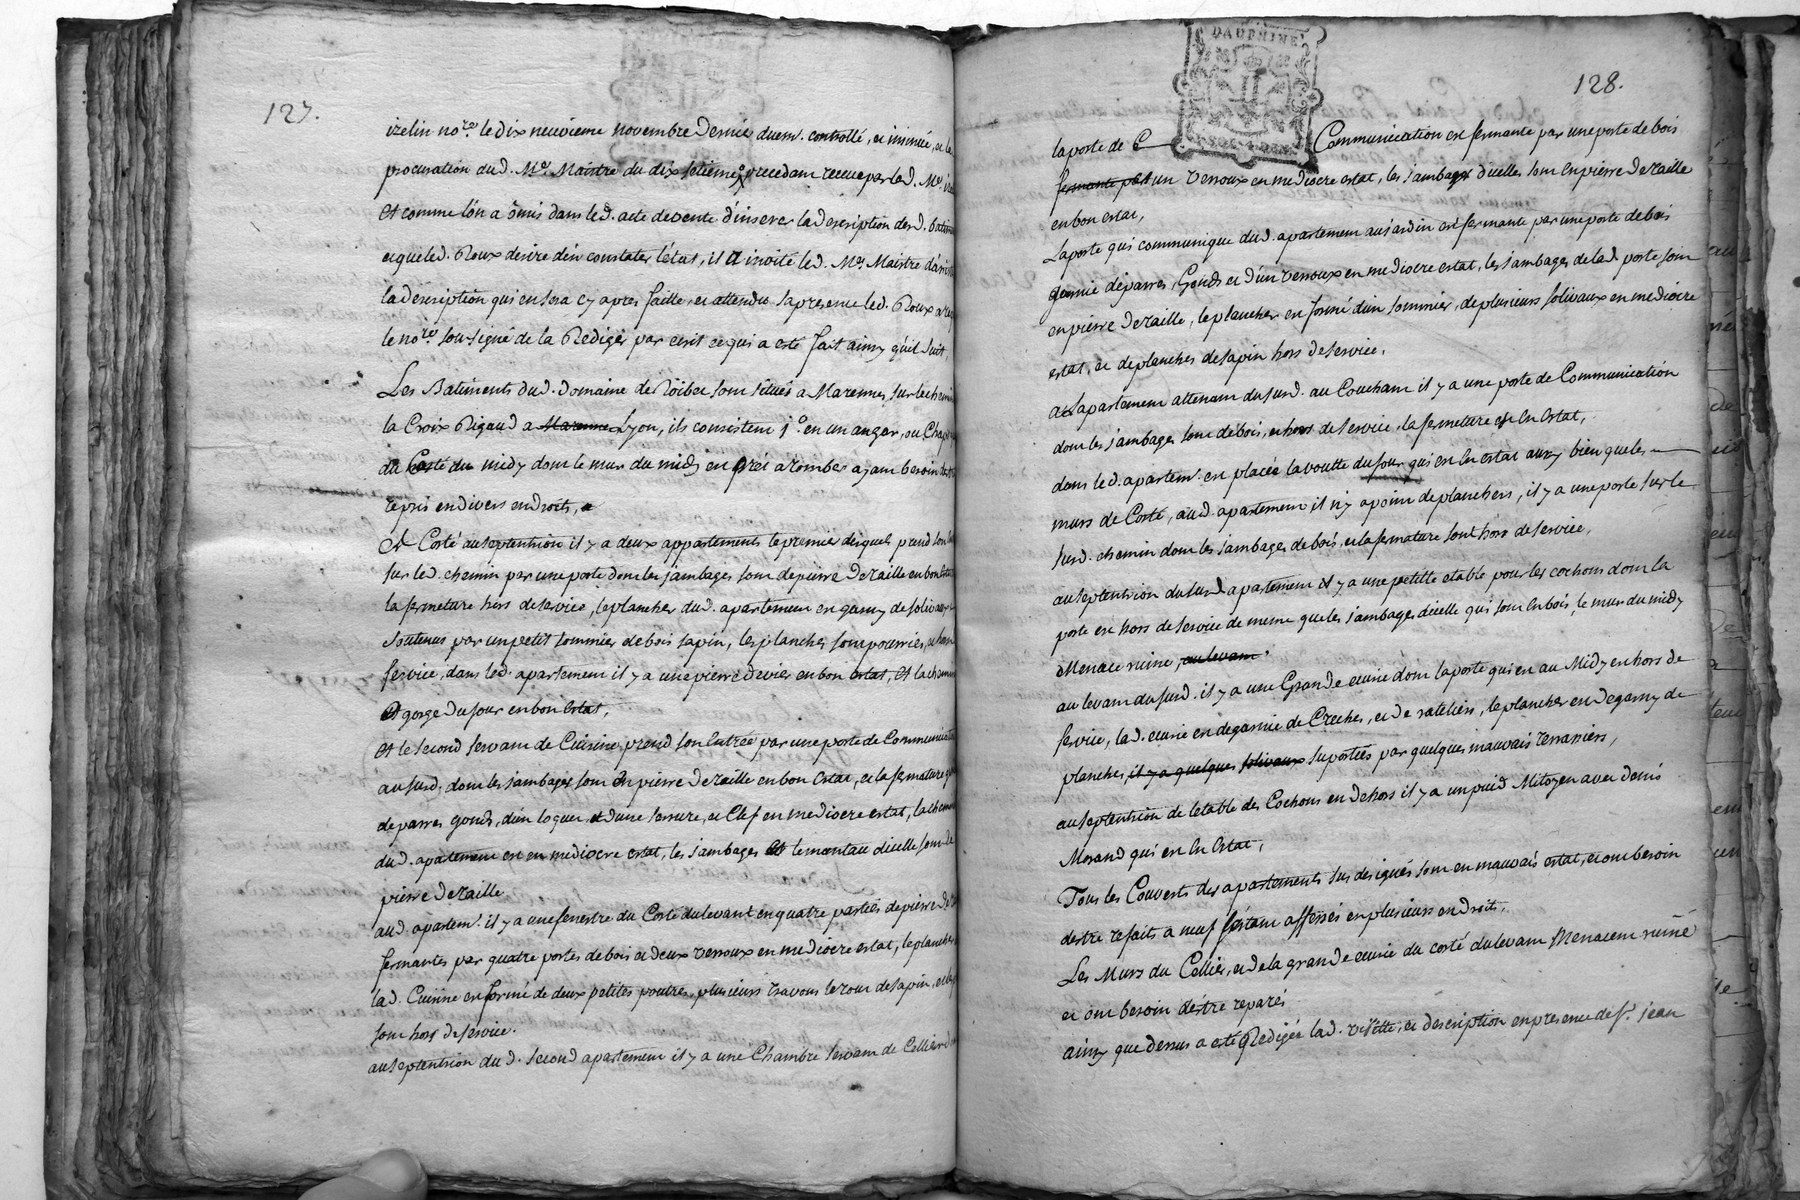 127.
izelin no.re le dix neuvieme novembre dernier duem.t controllé, et insinué, et la
procuration dud. M.e Maistre du dix septieme precedant receue par led. M.e
et comme l'on a omis dans led. acte de vente d'inserer la description desd. batimen
et que led. Roux desire d'en constater l'etat, il a invité led. M.e Maistre d'assis
la description qui en sera cy apres faitte, et attendu sa presence led. Roux a re
le no.re soussigné de la Rediger par ecrit ce qui a esté fait ainsy qu'il suit,
Les Batiments dud. domaine de sont situés a Marennes, sur le chemin
la Croix Rigaud a Marenne Lyon, ils consistent 1.o en un angar, ou Chap
du Costé du midy dont le mur du midy en prét a tomber ayant besoin
repris en divers endroits,
A Costé au septentrion il y a deux appartements le premier desquels prend son
sur led. chemin par une porte dont les jambages sont de pierre de taille en bon Estat
la fermeture hors de service, le plancher dud. apartement en garny de soliveaux
soutenus par un petit sommier de bois sapin, les planches sont pourries, et hors
service, dans led. apartement il y a une pierre d'evier en bon estat, et la chemin
et gorge du four en bon Estat,
et le second servant de Cuisine prend son Entrée par une porte de Communicati
au surd. dont les jambages sont en pierre de taille en bon Estat, et la fermature
de parres gonds, d'un loquet, et d'une serrure, et Clef en mediocre estat, la chemin
dud. apartement est en mediocre estat, les jambages et le manteau d'icelle sont de
pierre de taille
aud. apartem.t il y a une fenestre du Costé du levant en quatre parties de pierre de
fermantes par quatre portes de bois et deux verroux en mediocre estat, le planche
lad. Cuisine en formé de deux petites poutres, plusieurs travons le tout de sapin, et
sont hors de service.
au septentrion du d. second apartement il y a une Chambre servant de Cellier
DAUPHINE
128.
la porte de C Communication est fermante par une porte de bois
fermante par un verroux en mediocre estat, les jambages d'icelles sont en pierre de taille
en bon estat,
La porte qui communique dud. apartement au jardin est fermante par une porte de bois
garnie de parres, Gonds et d'un verroux en mediocre estat, les jambages de lad. porte sont
en pierre de taille, le plancher en formé d'un sommier, de plusieurs solivaux en mediocre
estat, et de planches de sapin hors de service,
a l'apartement attenant du surd. au Couchant il y a une porte de Communication
dont les jambages sont de bois, et hors de service, la fermeture est en Estat,
dans led. apartem.t en placée la voutte du four qui en en estat aussy bien que les
murs de Costé, aud. apartement il n'y a point de planchers, il y a une porte sur le
surd. chemin dont les jambages de bois, et la fermature sont hors de service,
au septentrion du surd. apartement il y a une petitte etable pour les cochons dont la
porte en hors de service de meme que les jambages d'icelle qui sont en bois, le mur du midy
Menace ruine, au levant
au levant du surd. il y a une Grande ecurie dont la porte qui en au Midy en hors de
service, lad. ecurie en degarnie de Creches, et de rateliers, le plancher en degarny de
planches, il y a quelques solivaux suportés par quelques mauvais
au septentrion de l'etable des Cochons en dehors il y a un puid Mitoyen avec denis
Morand qui en en Estat,
Tous les Couverts des apartements sus designés sont en mauvais estat, et ont besoin
d'estre refaits a neuf s'etant affessés en plusieurs endroits,
Les Murs du Cellier, et de la grande ecurie du costé du levant Menacent ruine
et ont besoin d'estre reparés
ainsy que dessus a eté Redigée lad. visitte, et description en presence de S.r jean